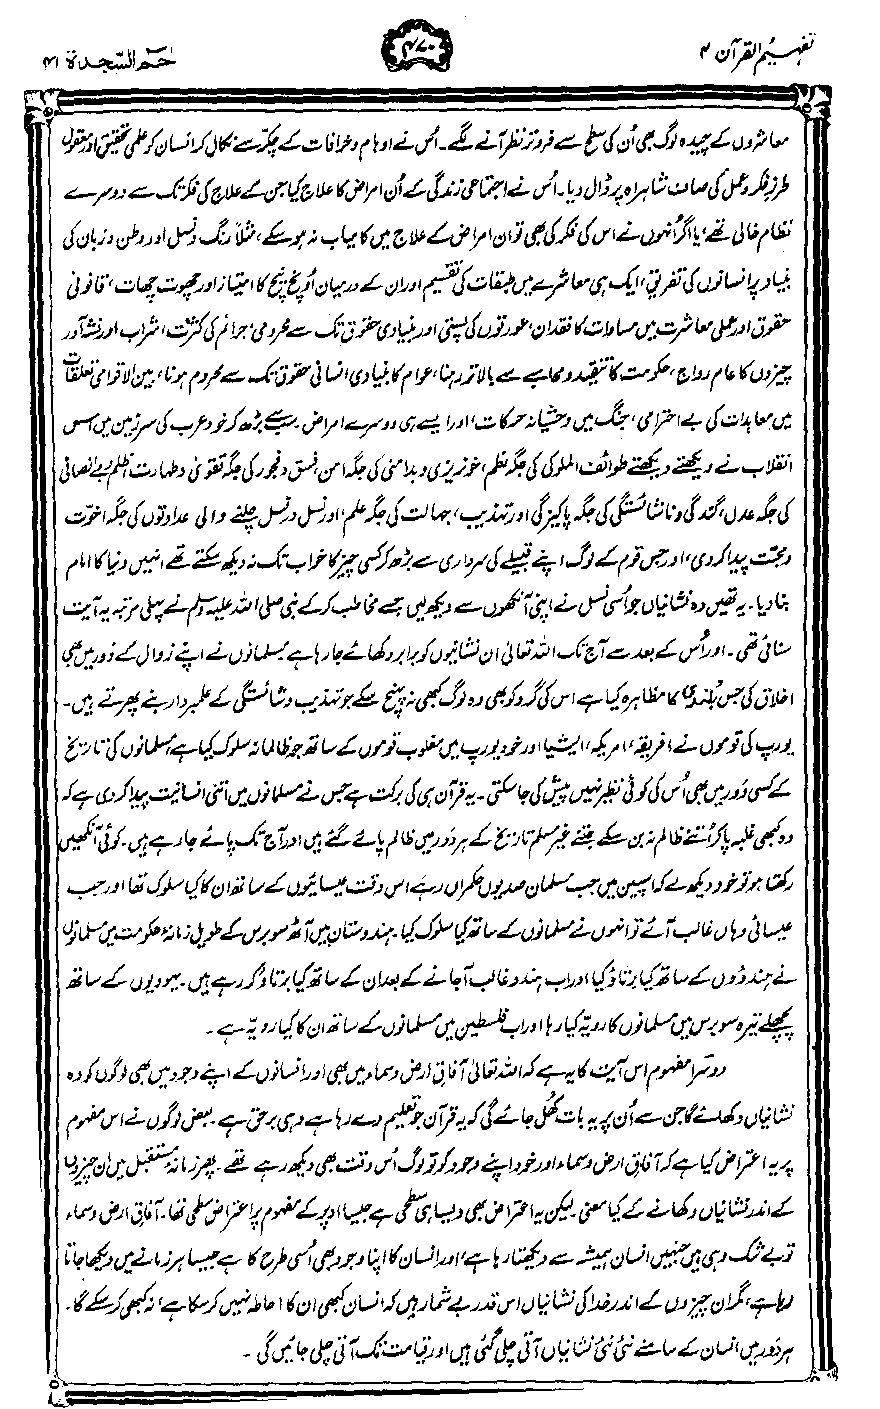 تفہیم القرآن ۴
۴۷۰
حٰم السّجدة ۴۱
معاشروں کے چیدہ لوگ بھی اُن کی سطح سے فروتر نظر آنے لگے۔ اُس نے اوہام و خرافات کے چکر سے نکال کر انسان کو علمی تحقیق اور معقول
طرزِ فکر و عمل کی صاف شاہراہ پر ڈال دیا۔ اُس نے اجتماعی زندگی کے اُن امراض کا علاج کیا جن کے علاج کی فکر تک سے دوسرے
نظام خالی تھے، یا اگر اُنہوں نے اس کی فکر کی بھی تو ان امراض کے علاج میں کامیاب نہ ہو سکے، مثلاً رنگ و نسل اور وطن و زبان کی
بنیاد پر انسانوں کی تفریق، ایک ہی معاشرے میں طبقات کی تقسیم اور ان کے درمیان اُونچ نیچ کا امتیاز اور چھوت چھات، قانونی
حقوق اور عملی معاشرت میں مساوات کا فقدان، عورتوں کی پستی اور بنیادی حقوق تک سے محرومی، جرائم کی کثرت، شراب اور نشہ آور
چیزوں کا عام رواج، حکومت کا تنقید و محاسبے سے بالاتر رہنا، عوام کا بنیادی انسانی حقوق تک سے محروم ہونا، بین الاقوامی تعلقات
میں معاہدات کی بے احترامی، جنگ میں وحشیانہ حرکات، اور ایسے ہی دوسرے امراض۔ سب سے بڑھ کر خود عرب کی سرزمین میں اس
انقلاب نے دیکھتے دیکھتے طوائف الملوکی کی جگہ نظم، خونریزی و بدامنی کی جگہ امن، فسق و فجور کی جگہ تقویٰ و طہارت، ظلم و بے انصافی
کی جگہ عدل، گندگی و ناشائستگی کی جگہ پاکیزگی اور تہذیب، جہالت کی جگہ علم، اور نسل در نسل چلنے والی عداوتوں کی جگہ اخوت
و محبت پیدا کر دی، اور جس قوم کے لوگ اپنے قبیلے کی سرداری سے بڑھ کر کسی چیز کا خواب تک نہ دیکھ سکتے تھے انہیں دنیا کا امام
بنا دیا۔ یہ تھیں وہ نشانیاں جو اُسی نسل نے اپنی آنکھوں سے دیکھ لیں جسے مخاطب کر کے نبی صلی اللہ علیہ وسلم نے پہلی مرتبہ یہ آیت
سنائی تھی۔ اور اُس کے بعد سے آج تک اللہ تعالیٰ ان نشانیوں کو برابر دکھائے جا رہا ہے۔ مسلمانوں نے اپنے زوال کے دَور میں بھی
اخلاق کی جس بلندی کا مظاہرہ کیا ہے اس کی گرد کو بھی وہ لوگ کبھی نہ پہنچ سکے جو تہذیب و شائستگی کے علمبردار بنے پھرتے ہیں۔
یورپ کی قوموں نے افریقہ، امریکہ، ایشیا اور خود یورپ میں مغلوب قوموں کے ساتھ جو ظالمانہ سلوک کیا ہے، مسلمانوں کی تاریخ
کے کسی دَور میں بھی اُس کی کوئی نظیر نہیں پیش کی جا سکتی۔ یہ قرآن ہی کی برکت ہے جس نے مسلمانوں میں اتنی انسانیت پیدا کر دی ہے کہ
وہ کبھی غلبہ پا کر اُتنے ظالم نہ بن سکے جتنے غیر مسلم تاریخ کے ہر دَور میں ظالم پائے گئے ہیں اور آج تک پائے جا رہے ہیں۔ کوئی آنکھیں
رکھتا ہو تو خود دیکھ لے کہ اسپین میں جب مسلمان صدیوں حکمراں رہے، اس وقت عیسائیوں کے ساتھ ان کا کیا سلوک تھا اور جب
عیسائی وہاں غالب آئے تو انہوں نے مسلمانوں کے ساتھ کیا سلوک کیا۔ ہندوستان میں آٹھ سو برس کے طویل زمانۂ حکومت میں مسلمانوں
نے ہندوؤں کے ساتھ کیا برتاؤ کیا اور اب ہندو غالب آ جانے کے بعد ان کے ساتھ کیا برتاؤ کر رہے ہیں۔ یہودیوں کے ساتھ
پچھلے تیرہ سو برس میں مسلمانوں کا رویّہ کیا رہا اور اب فلسطین میں مسلمانوں کے ساتھ ان کا کیا رویّہ ہے۔
دوسرا مفہوم اس آیت کا یہ ہے کہ اللہ تعالیٰ آفاقِ ارض و سماء میں بھی اور انسانوں کے اپنے وجود میں بھی لوگوں کو وہ
نشانیاں دکھلائے گا جن سے اُن پر یہ بات کُھل جائے گی کہ یہ قرآن جو تعلیم دے رہا ہے وہی برحق ہے۔ بعض لوگوں نے اس مفہوم
پر یہ اعتراض کیا ہے کہ آفاقِ ارض و سماء اور خود اپنے وجود کو تو لوگ اُس وقت بھی دیکھ رہے تھے۔ پھر زمانۂ مستقبل میں ان چیزوں
کے اندر نشانیاں دکھانے کے کیا معنی۔ لیکن یہ اعتراض بھی ویسا ہی سطحی ہے جیسا اوپر کے مفہوم پر اعتراض سطحی تھا۔ آفاقِ ارض و سماء
تو بے شک وہی ہیں جنہیں انسان ہمیشہ سے دیکھتا رہا ہے، اور انسان کا اپنا وجود بھی اُسی طرح کا ہے جیسا ہر زمانے میں دیکھا جاتا
رہا ہے، مگر ان چیزوں کے اندر خدا کی نشانیاں اس قدر بے شمار ہیں کہ انسان کبھی ان کا احاطہ نہیں کر سکا ہے، نہ کبھی کر سکے گا۔
ہر دَور میں انسان کے سامنے نئی نئی نشانیاں آتی چلی گئی ہیں اور قیامت تک آتی چلی جائیں گی۔